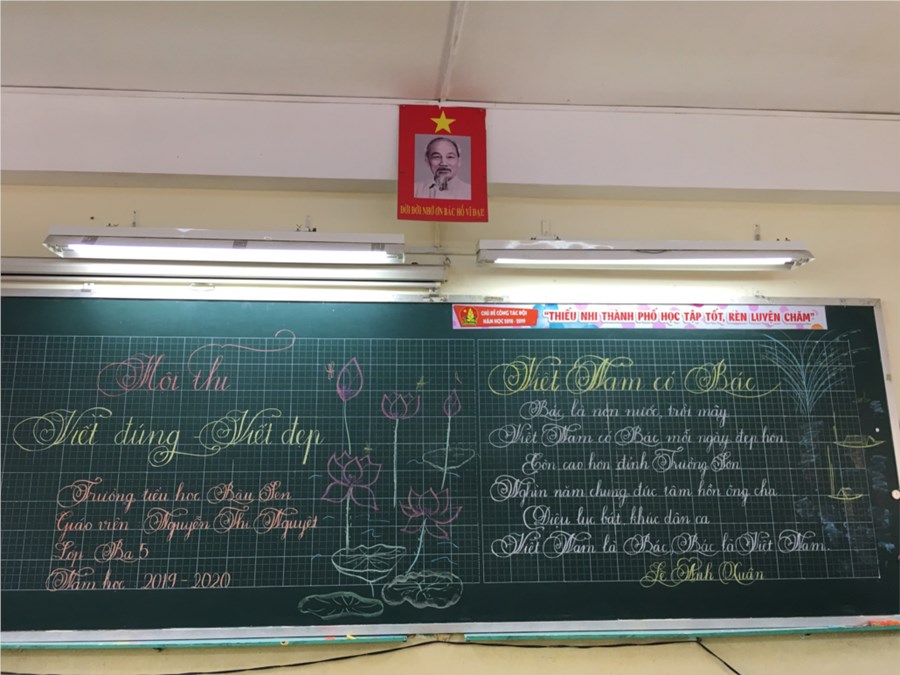 ĐỜI ĐỜI NHỚ ƠN BÁC HỒ VĨ ĐẠI!
CHỦ ĐỀ CÔNG TÁC ĐỘI
NĂM HỌC 2018 - 2019
"THIẾU NHI THÀNH PHỐ HỌC TẬP TỐT, RÈN LUYỆN CHĂM"
Hội thi
Viết đúng - Viết đẹp
Trường tiểu học Bàu Sen
Giáo viên Nguyễn Thị Nguyệt
Lớp Ba 5
Năm học 2019 - 2020
Việt Nam có Bác
Bác là non nước, trời mây
Việt Nam có Bác mỗi ngày đẹp hơn.
Còn cao hơn đỉnh Trường Sơn
Nghìn năm chung đúc tâm hồn ông cha
Điệu lục bát, khúc dân ca
Việt Nam là Bác, Bác là Việt Nam.
Lê Anh Xuân